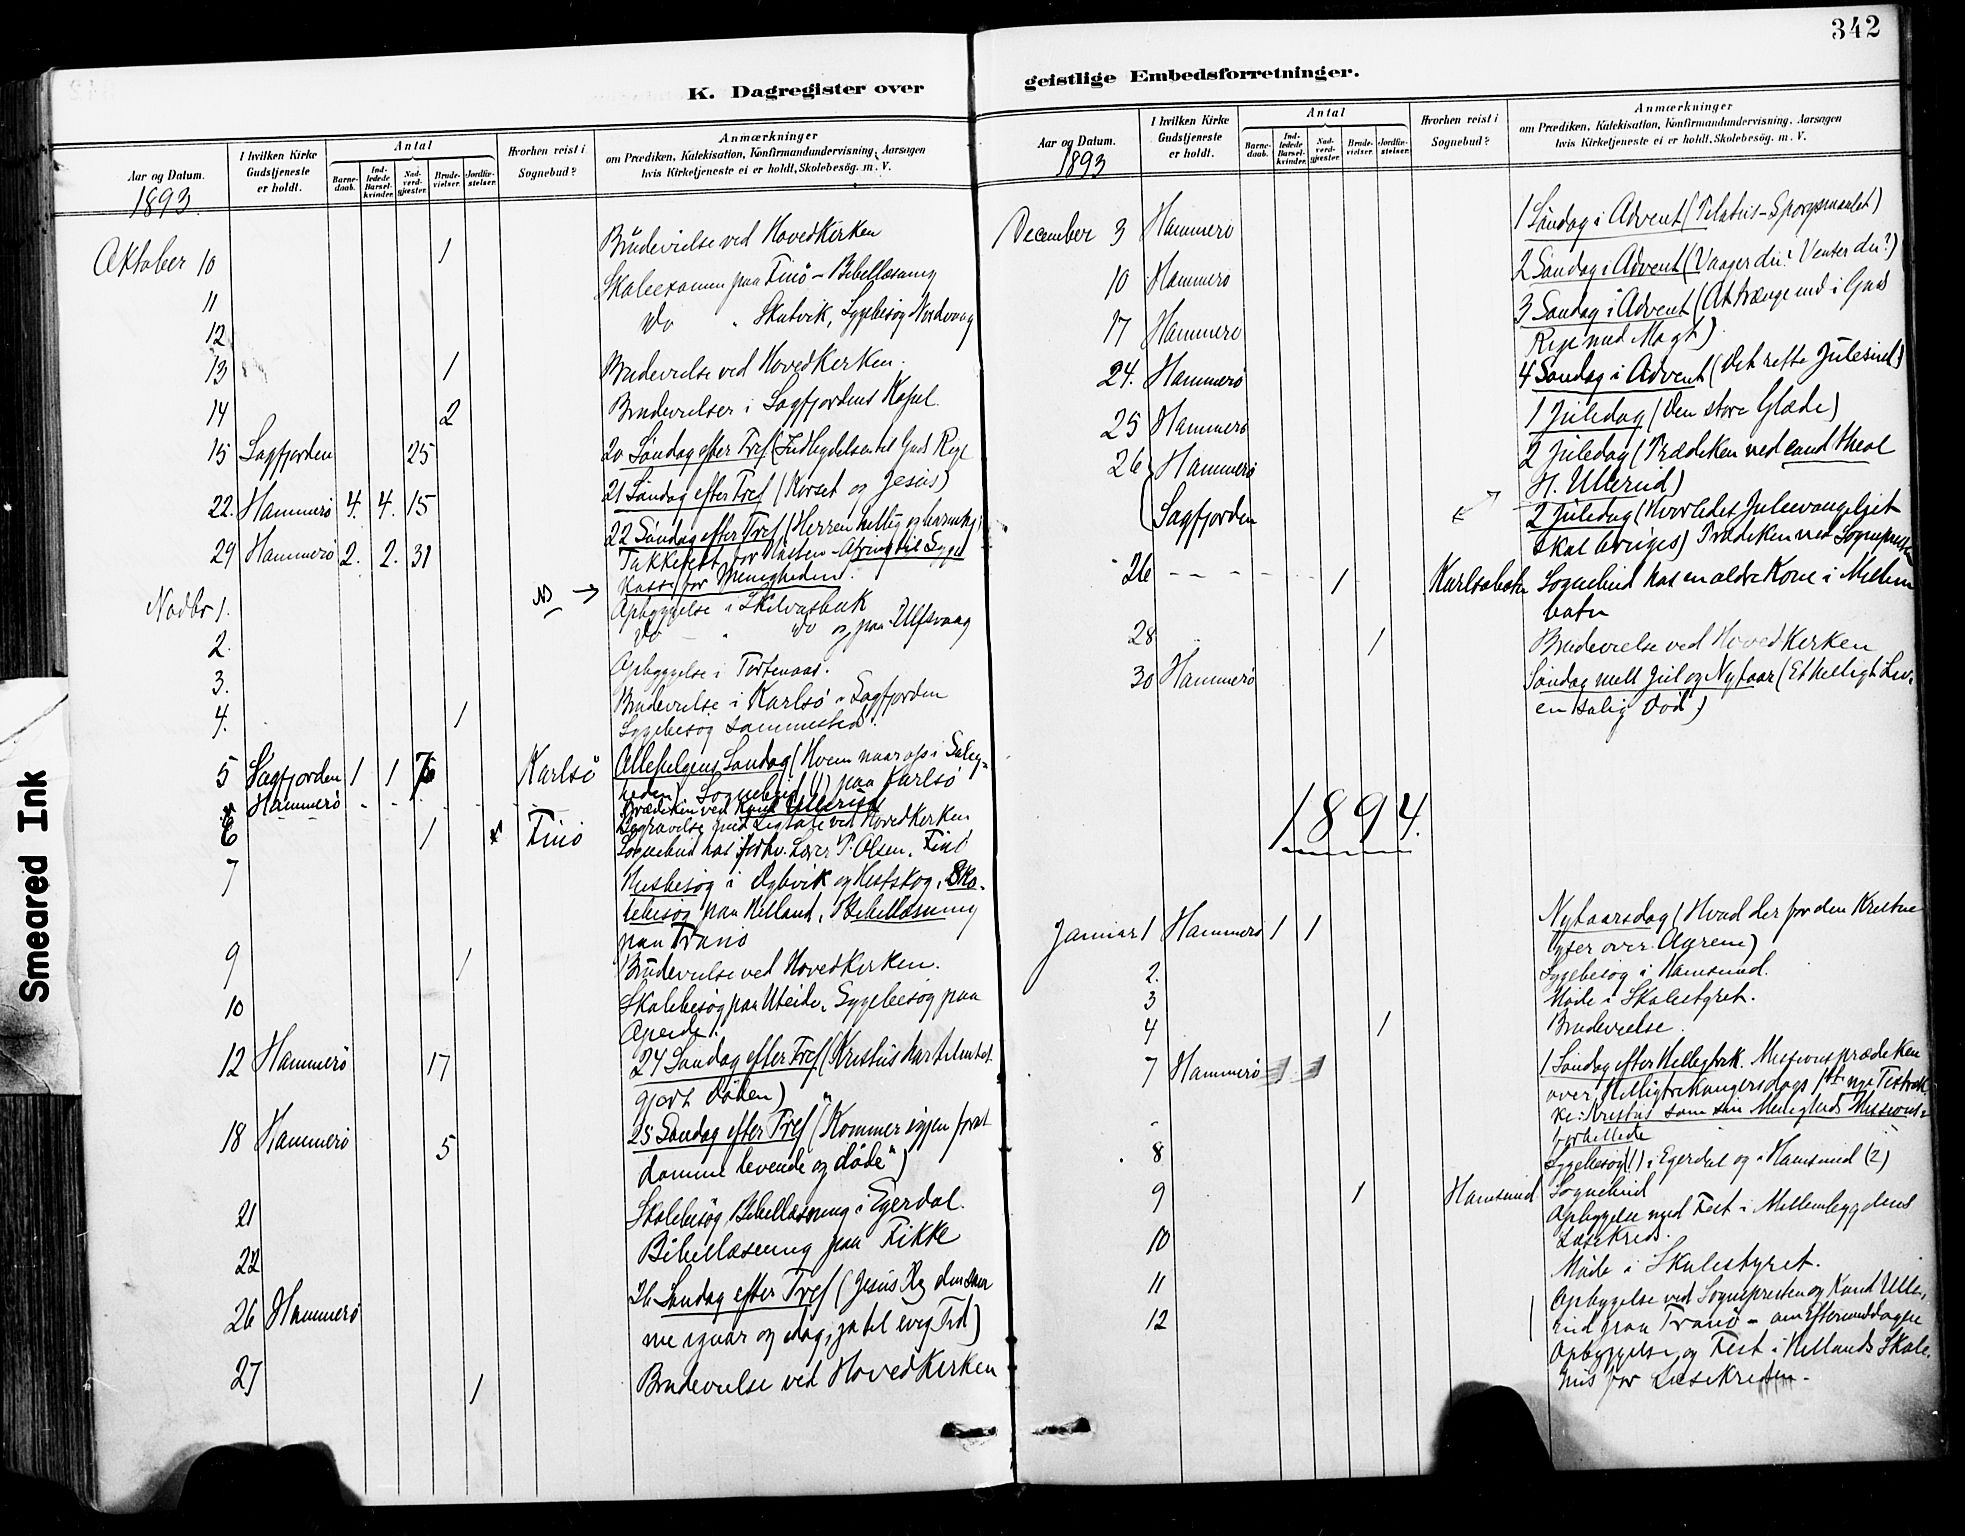 342
K. Dagregister over
Aar og Datum.
I hvilken Kirke Gudstjeneste er holdt.
Antal
Barne-daab.
Ind-ledede Barsel-kvinder.
Nad-verd-gjester.
Brude-vielser.
Jordfæ-stelser.
Hvorhen reist i Sognebud?
Anmærkninger
om Prædiken, Katekisation, Konfirmandundervisning, Aarsagen
hvis Kirketjeneste ei er holdt, Skolebesög. m. V.
1893.
Oktober 10 1 Brüdevielse ved Hovedkirken
11 Skoleexamen paa Finö - Bibellæsning
12 Do " Skutvik, Sygebesög Nordvaag
13 1 Brudevielse ved Hovedkirken.
14 2 Brudevielser i Sagfjordens Kapel.
15 Sagfjorden 25 20 Söndag efter Tref (Indbydelsen til Guds Rige
22. Hammerö 4. 4. 15 21 Söndag efter Tref (Korset og Jesus)
29 Hammerö 2. 2. 31 22 Söndag efter Tref (Herren hellig og
Takkefest for Høsten - til Syge
Kasse for Menigheden.
NB →
Novbr 1. Opbyggelse i Skilvasbuk
2. Do " Do og paa Ulfsvaag
3. Opbyggelse i Tortenaas.
4. 1 Brudevielse i Karlsö i Sagfjorden
Sygebesög sammesteds.
5 Sagfjorden 1 1 Karlsö Allehelgens Söndag (Hvem naar op i Salig-
heden) Sognebud (1) paa Karlsö
Hammerö - - - Prædiken ved Kand Ullerud
6 1 x Finö Begravelse med Ligtale ved Hovedkirken
Sognebud hos forhv. Lærer P. Olsen, Finö
7 Husbesög i Dybvik og Hestskog, Sko-
lebesög paa Helland, Bibellæsning
paa Tranö
9 1 Brüdevielse ved Hovedkirken.
10 Skolebesög paa Uteide, Sygebesög paa
12 Hammerö 17 24 Söndag efter Tref (Kristus har tilintet
gjort Döden)
18 Hammerö 5 25 Söndag efter Tref ("Kommer igjen for at
dömme levende og döde")
21 Skolebesög, Bibellæsning i Egerdal.
22 Bibellæsning paa Fikke
26 Hammerö 26 Söndag efter Tref (Jesus Kr den sam
me igaar og idag, ja til evig Tid)
27 1 Brudevielse ved Hovedkirken
geistlige Embedsforretninger.
Aar og Datum.
I hvilken Kirke Gudstjeneste er holdt.
Antal
Barne-daab.
Ind-ledede Barsel-kvinder.
Nad-verd-gjester.
Brude-vielser.
Jordfæ-stelser.
Hvorhen reist i Sognebud?
Anmærkninger
om Prædiken, Katekisation, Konfirmandundervisning, Aarsagen
hvis Kirketjeneste ei er holdt, Skolebesög. m. V.
1893
December 3 Hammerö 1 Söndag i Advent (Pilatus-Spörgsmaalet)
10 Hammerö 2 Söndag i Advent (Vaager du? Venter du?)
17 Hammerö 3 Söndag i Advent (At trænge ind i Guds
Rige med Magt)
24. Hammerö 4 Söndag i Advent (Det rette Julesind)
25 Hammerö 1 Juledag (Den store Glæde)
26 Hammerö 2 Juledag (Prædiken ved cand theol
H. Ullerud)
Sagfjorden 2 Juledag (Hvorledes Juleevangeliet
skal bruges) Prædiken ved Sognepresten
26 - - - - 1 Karlsobotn Sognebud hos en ældre Kone i Mellem
botn
28 1 Brudevielse ved Hovedkirken
30 Hammerö Söndag mell Jul og Nytaar (Et helligt Liv,
en salig Död)
1894.
Januar 1 Hammerö 1 1 Nytaarsdag (Hvad der for den Kristne
lyser over Aaret)
2. Sygebesög i Hamsund.
3 Möde i Skolestyret.
4 1 Brudevielse.
7 Hammerö 1 1 1 Söndag efter Helligtrek. Missionsprædiken
over Helligtrekongersdags nye Textræk
ke: Kristus som sin Menigheds Missions-
forbillede
8 Sygebesög (1) i Egerdal og i Hamsund (2)
9 1 Hamsund Sognebud
Opbyggelse med Fest i Mellembygdens
Læsekreds.
10 Möde i Skolestyret.
11 Opbyggelse ved Sognepresten og Kand Ulle-
12 rud paa Tranö - om Eftermiddagen
Opbyggelse og Fest i Hellands Skole-
hus for Læsekredsen.
Smeared Ink